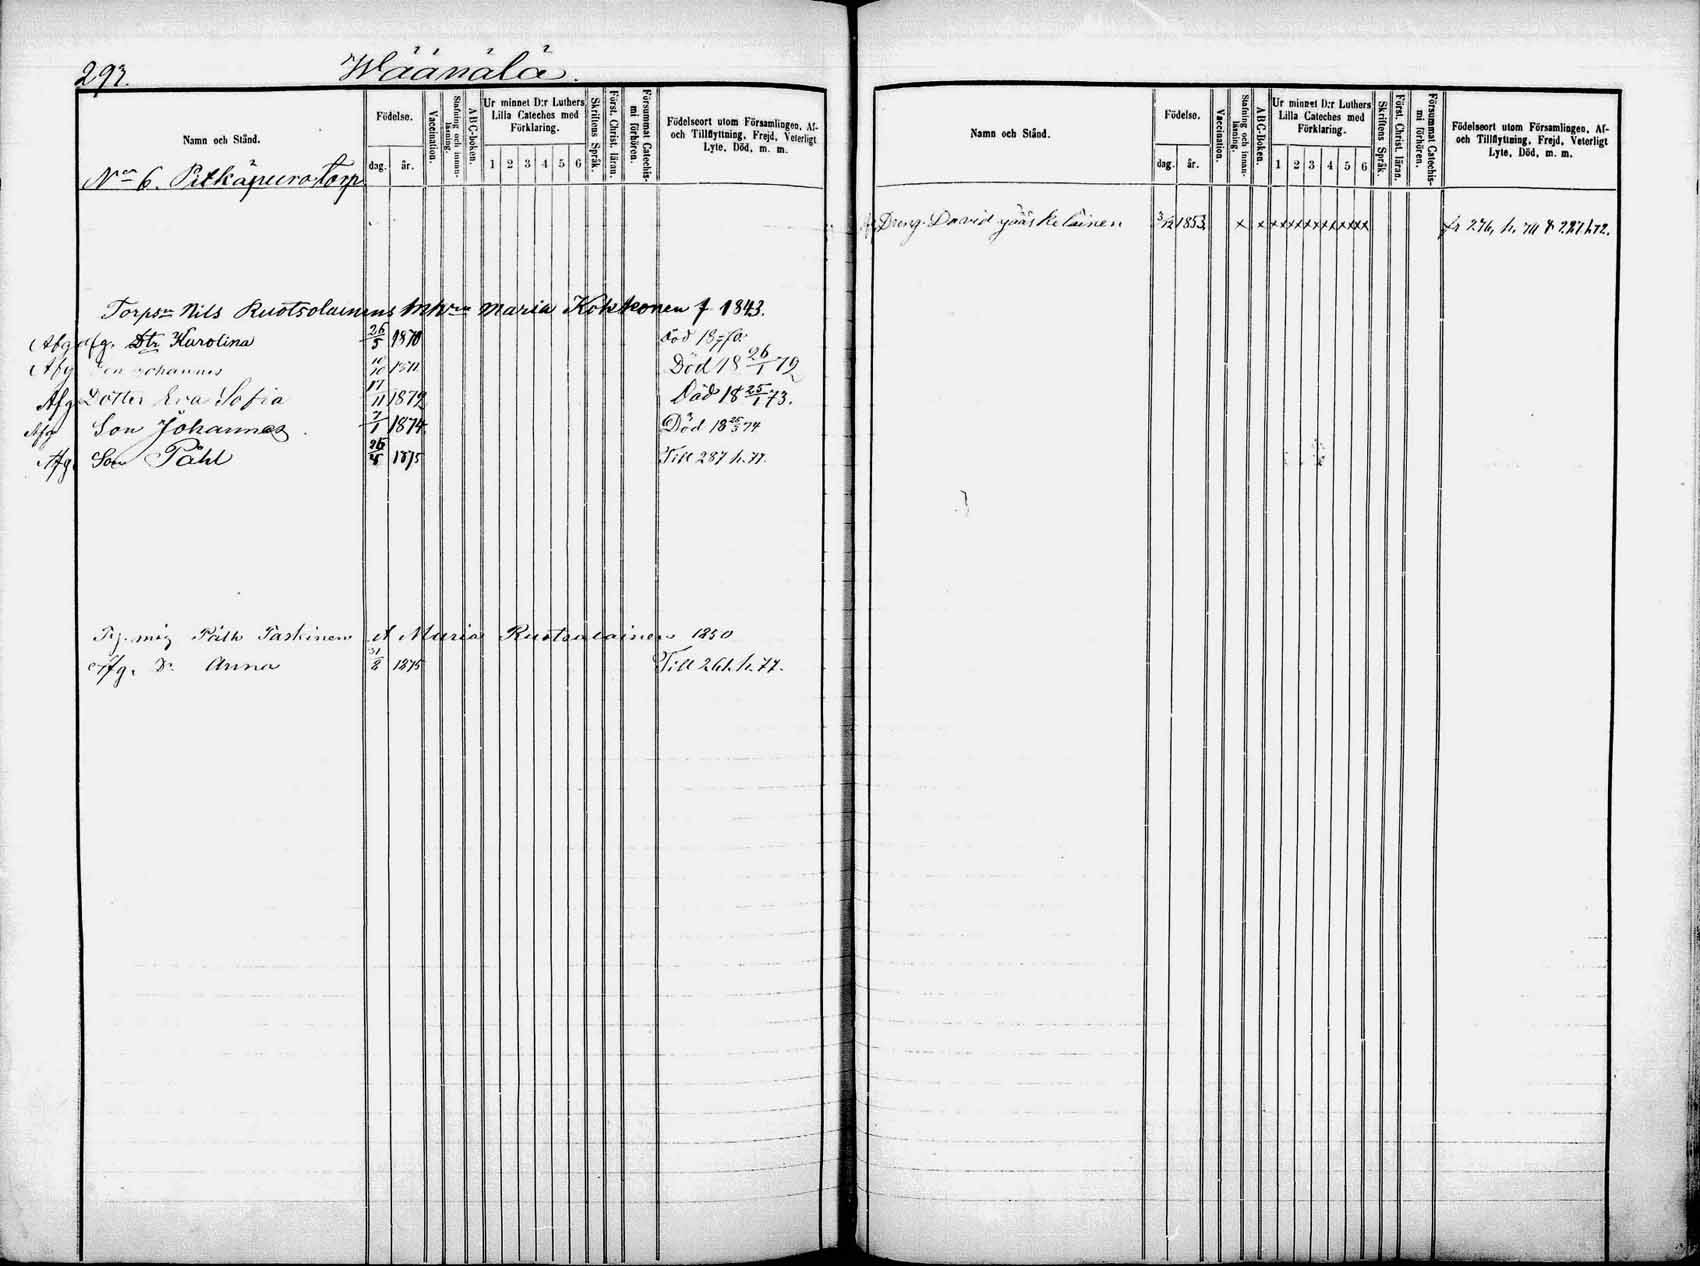 293.
Wäänälä.
Namn och Stånd.
Födelse.
dag. år.
Vaccination.
Stafning och innanläsning.
ABC-boken.
Ur minnet D:r Luthers Lilla Cateches med Förklaring.
1 2 3 4 5 6
Skriftens Språk.
Först. Christ. läran.
Försummat Catechismi förhören.
Födelseort utom Församlingen, Af- och Tillflyttning, Frejd, Veterligt Lyte, Död, m. m.
N:o 6. Pitkäpuro Torp
Torp:n Nils Ruotsolainens Maria Kokkonen f 1843.
Afg Dtr Karolina 26/5 1870 död
Afg Son Johannes 10/10 1871 Död 18 26/1 72
Afg Dotter Eva Sofia 17/11 1872 Död 18 25/1 73.
Afg Son Johannes 7/1 1874 Död 18 25/3 74
Afg. Son Påhl 26/5 1875 Till 287 h. 77.
Påhl Paskinen Maria Ruotsalainen 1850
Afg. D. Anna 31/8 1875 Till 261. h. 77.
Namn och Stånd.
Födelse.
dag. år.
Vaccination.
Stafning och innanläsning.
ABC-Boken.
Ur minnet D:r Luthers Lilla Cateches med Förklaring.
1 2 3 4 5 6
Skriftens Språk.
Först. Christ. läran.
Försummat Catechismi förhören.
Födelseort utom Församlingen, Af- och Tillflyttning, Frejd, Veterligt Lyte, Död, m. m.
Dreng David Jääskeläinen 3/12 1853. x x xxxxxxxxxx fr 276, h. 70 t 227 h 72.